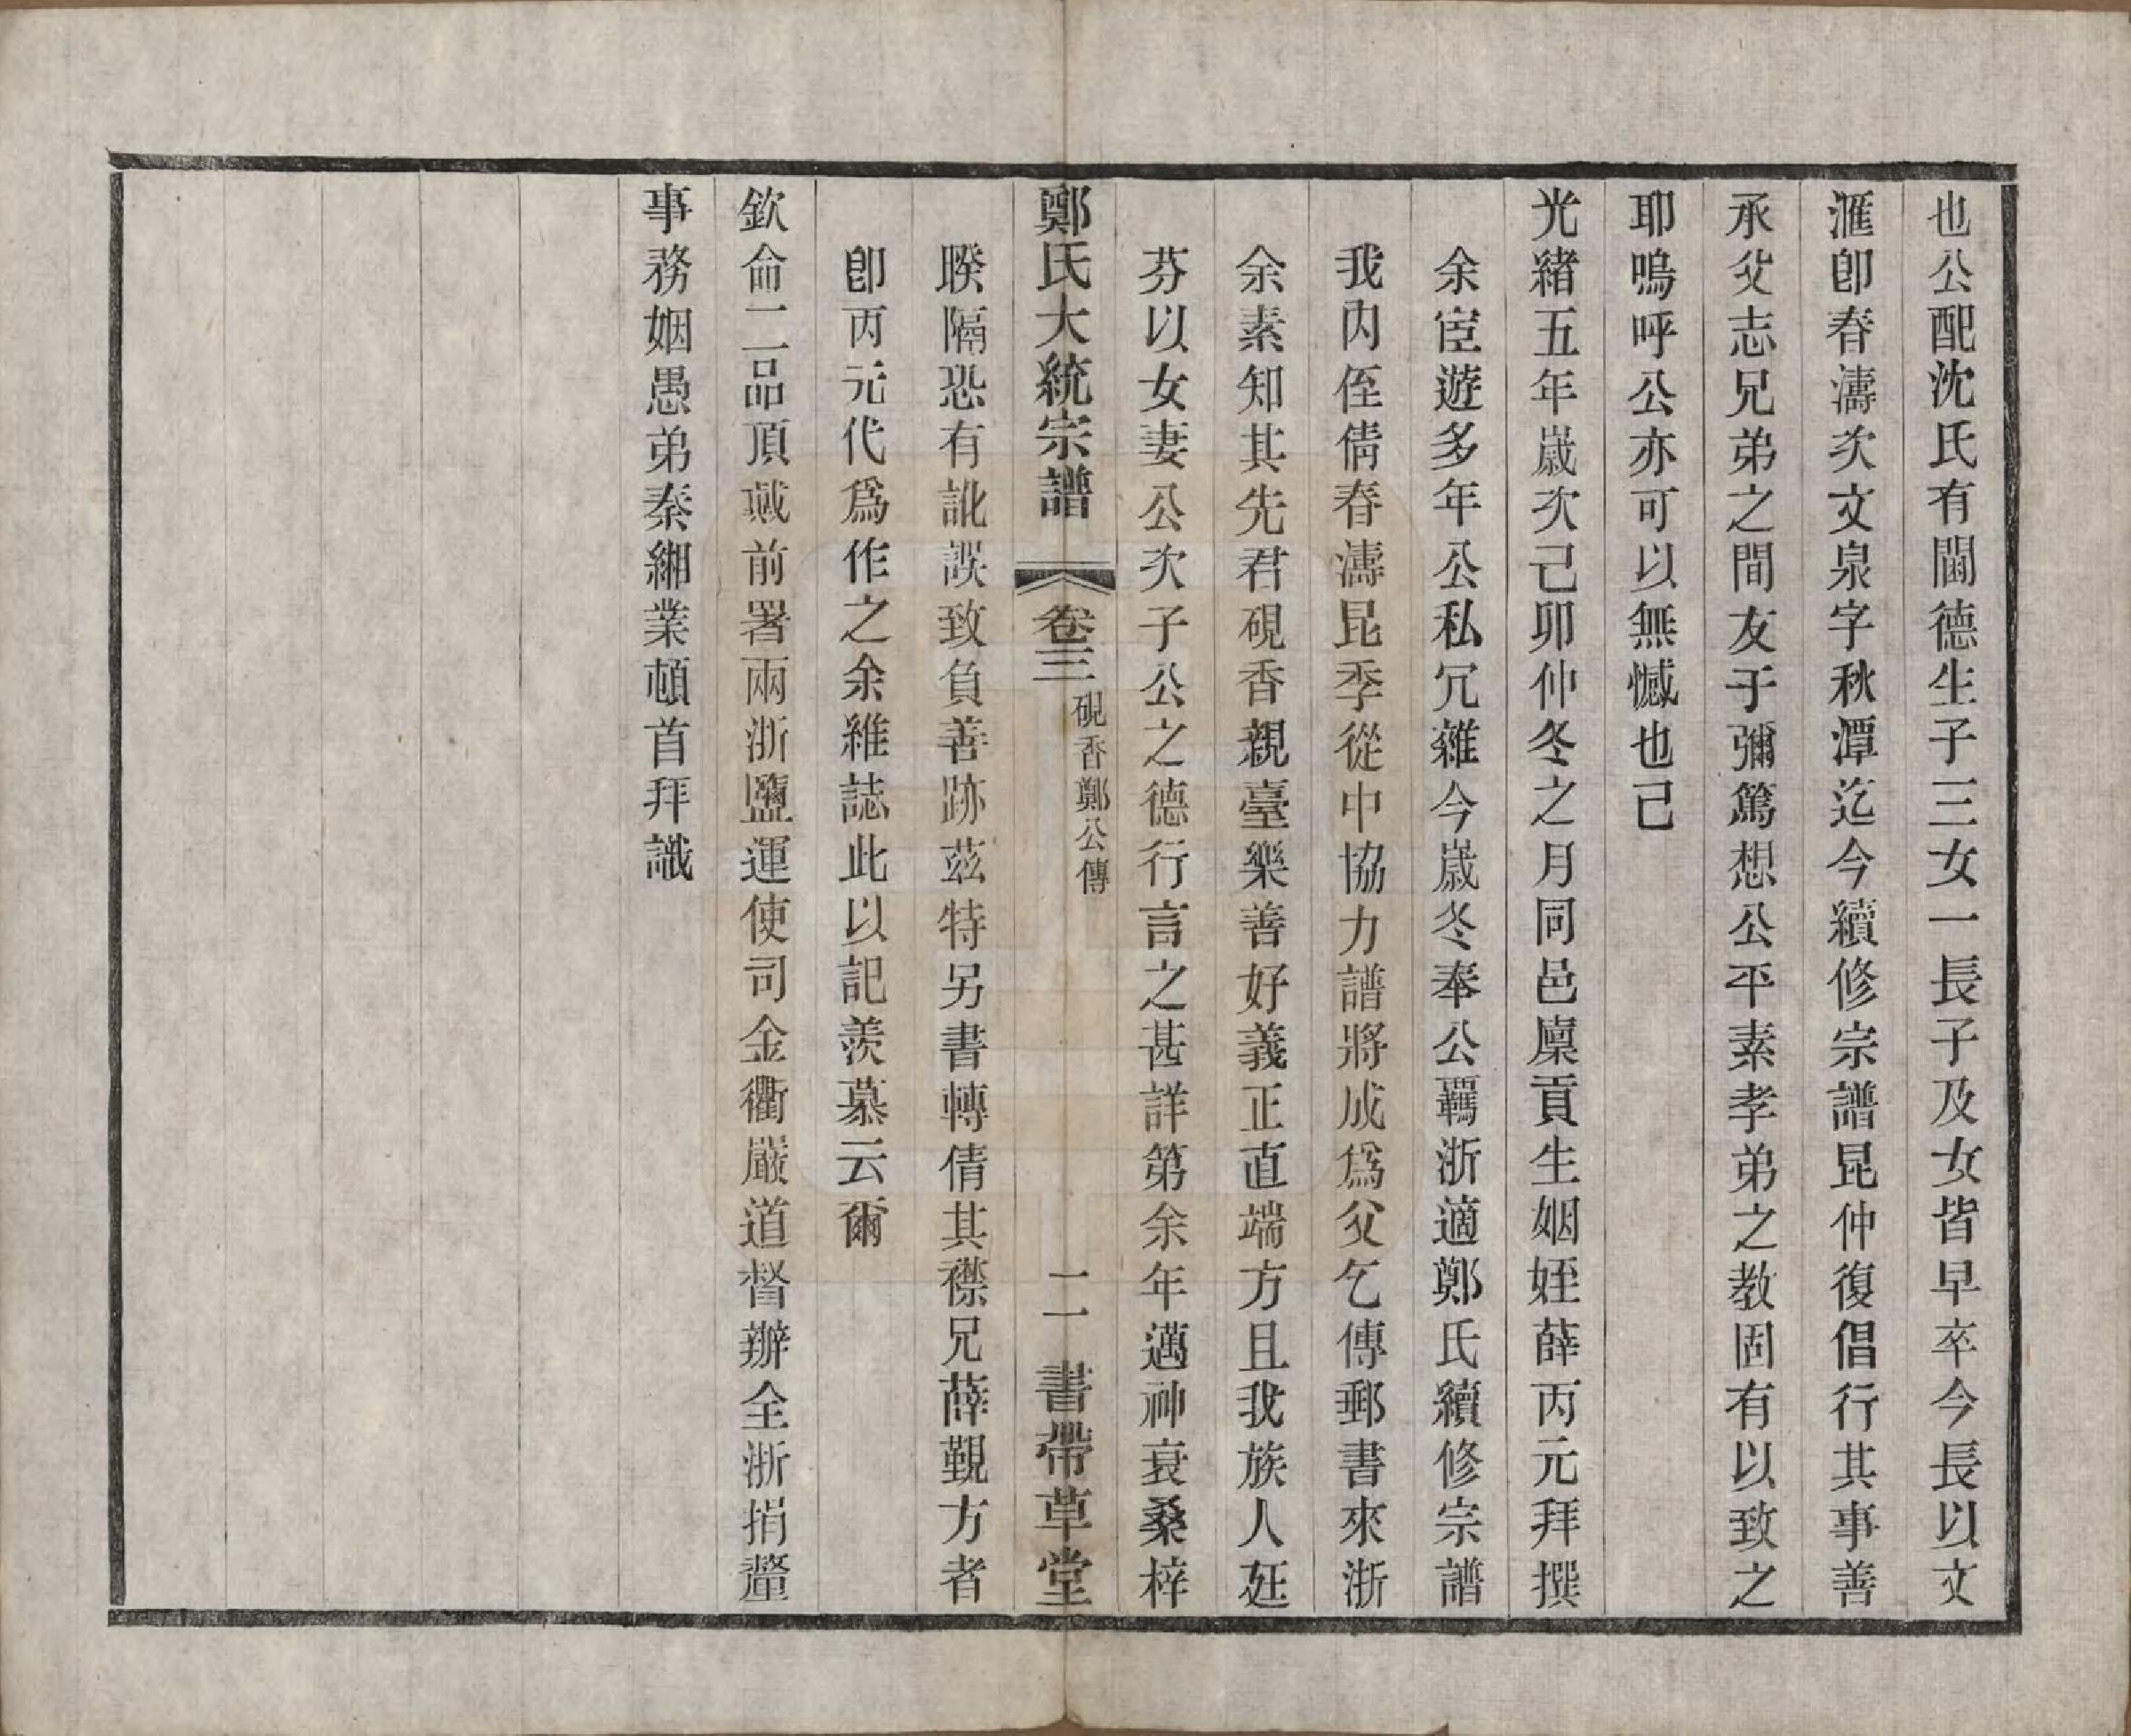 也公配沈氏有閫德生子三女一長子及女皆早卒今長以文
滙卽春濤次文泉字秋潭迄今續修宗譜昆仲復倡行其事善
承父志兄弟之間友于彌篤想公平素孝弟之教固有以致之
耶嗚呼公亦可以無憾也已
光緒五年歲次己卯仲冬之月同邑廩貢生姻姪薛丙元拜撰
余宦遊多年公私冗雜今歲冬奉公羈浙適鄭氏續修宗譜
我內侄倩春濤昆季從中協力譜將成爲父乞傳郵書來浙
余素知其先君硯香親臺樂善好義正直端方且我族人廷
芬以女妻公次子公之德行言之甚詳第余年邁神衰桑梓
鄭氏大統宗譜 卷三 硯香鄭公傳 二一 書帶草堂
睽隔恐有訛誤致負善跡茲特另書轉倩其襟兄薛覲方者
卽丙元代爲作之余維誌此以記羨慕云爾
欽命二品頂戴前署兩浙鹽運使司金衢嚴道督辦全浙捐釐
事務姻愚弟秦緗業頓首拜識